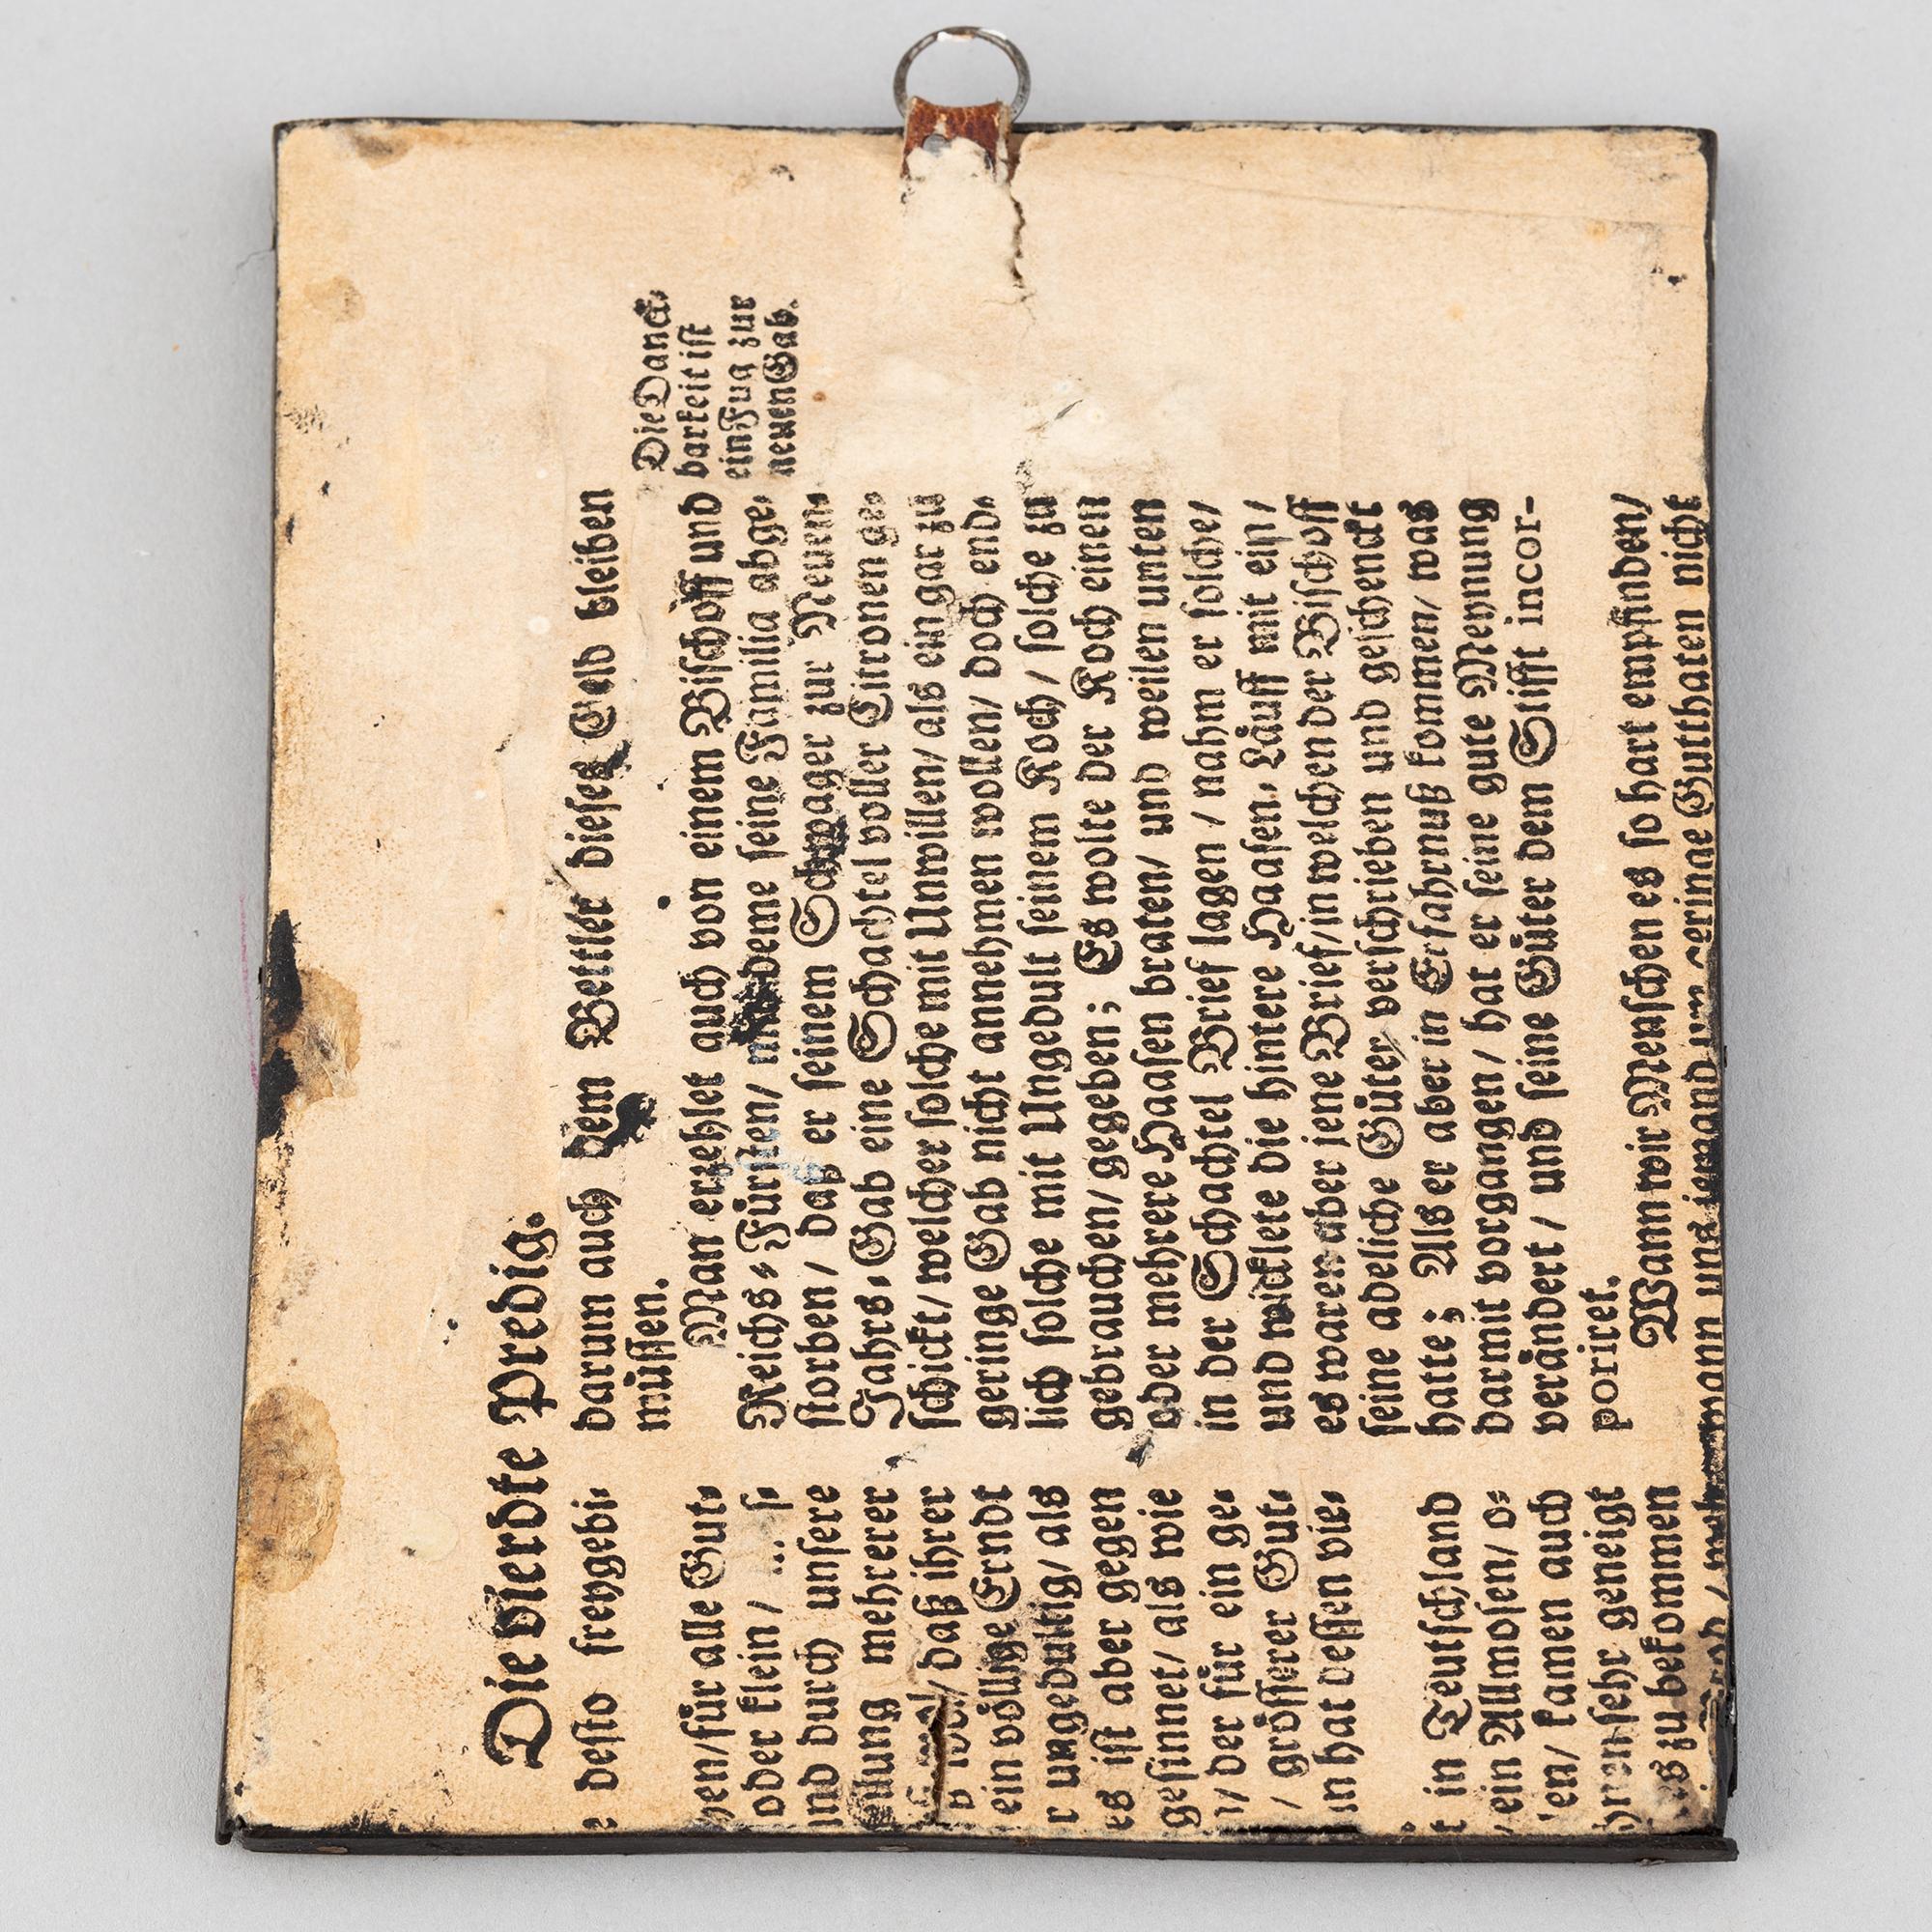 Die vierdte Predig.
e desto freygebi⸗
hen/ für alle Gut⸗
oder klein /
und durch unsere
mehrerer
/ daß ihrer
ein völlige Erndt
r ungedultig/ als
es ist aber gegen
gesinnet/ als wie
/ der für ein ge⸗
/ grösserer Gut⸗
in hat dessen vie⸗
t in Teutschland
/ ein Allmosen/ o⸗
en/ kamen auch
hnen sehr geneigt
es zu bekommen
darum auch dem Bettler dieses Geld bleiben
müssen.
Man erzehlet auch von einem Bischoff und
Reichs⸗Fürsten/ deme seine Familia abge⸗
storben/ daß er seinem Schwager zur Neuen⸗
Jahrs⸗Gab eine Schachtel voller Citronen ge⸗
schickt/ welcher solche mit Unwillen/ als ein gar zu
geringe Gab nicht annehmen wollen/ doch end⸗
lich solche mit Ungedult seinem Koch/ solche zu
gebrauchen/ gegeben; Es wolte der Koch einen
oder mehrere Haasen braten/ und weilen unten
in der Schachtel Brief lagen / nahm er solche/
und wicklete die hintere Haasen⸗Läuff mit ein/
es waren aber jene Brief/ in welchen der Bischoff
seine adeliche Güter verschrieben und geschenckt
hatte; Als er aber in Erfahrnuß kommen/ was
darmit vorgangen/ hat er seine gute Meynung
verändert / und seine Güter dem Stifft incor-
poriret.
Wann wir Menschen es so hart empfinden/
wann uns jemand um geringe Gutthaten nicht
Die Danck⸗
barkeit ist
ein Fug zur
neuen Gab.